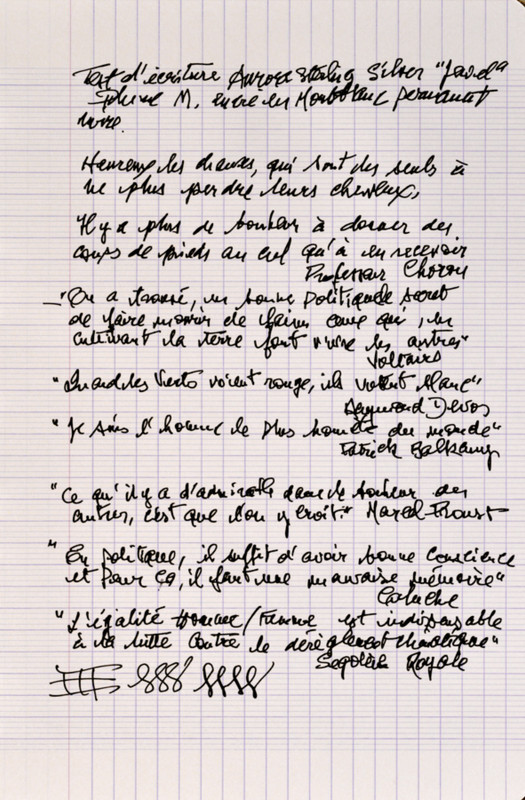 Test d'écriture Aurora Sterling Silver
Plume M, encre en Montblanc permanent
noire.
Heureux les chauves, qui sont les seuls à
ne plus perdre leurs cheveux,
Il y a plus de bonheur à donner des
coups de pieds au cul qu'à en recevoir
Professeur Choron
_"On a trouvé, en bonne politique le secret
de faire mourir de faim ceux qui, en
cultivant la terre font vivre les autres"
Voltaire
"Quand les Verts voient rouge, ils votent blanc"
Raymond Devos
"Je suis l'homme le plus honnête du monde"
Patrick Balkany
"Ce qu'il y a d'admirable dans le bonheur des
autres, c'est que l'on y croit." Marcel Proust
"En politique, il suffit d'avoir bonne conscience
et pour ça, il faut une mauvaise mémoire"
Coluche
"L'égalité Homme/Femme est indispensable
à la lutte contre le dérèglement climatique"
Segolène Royale